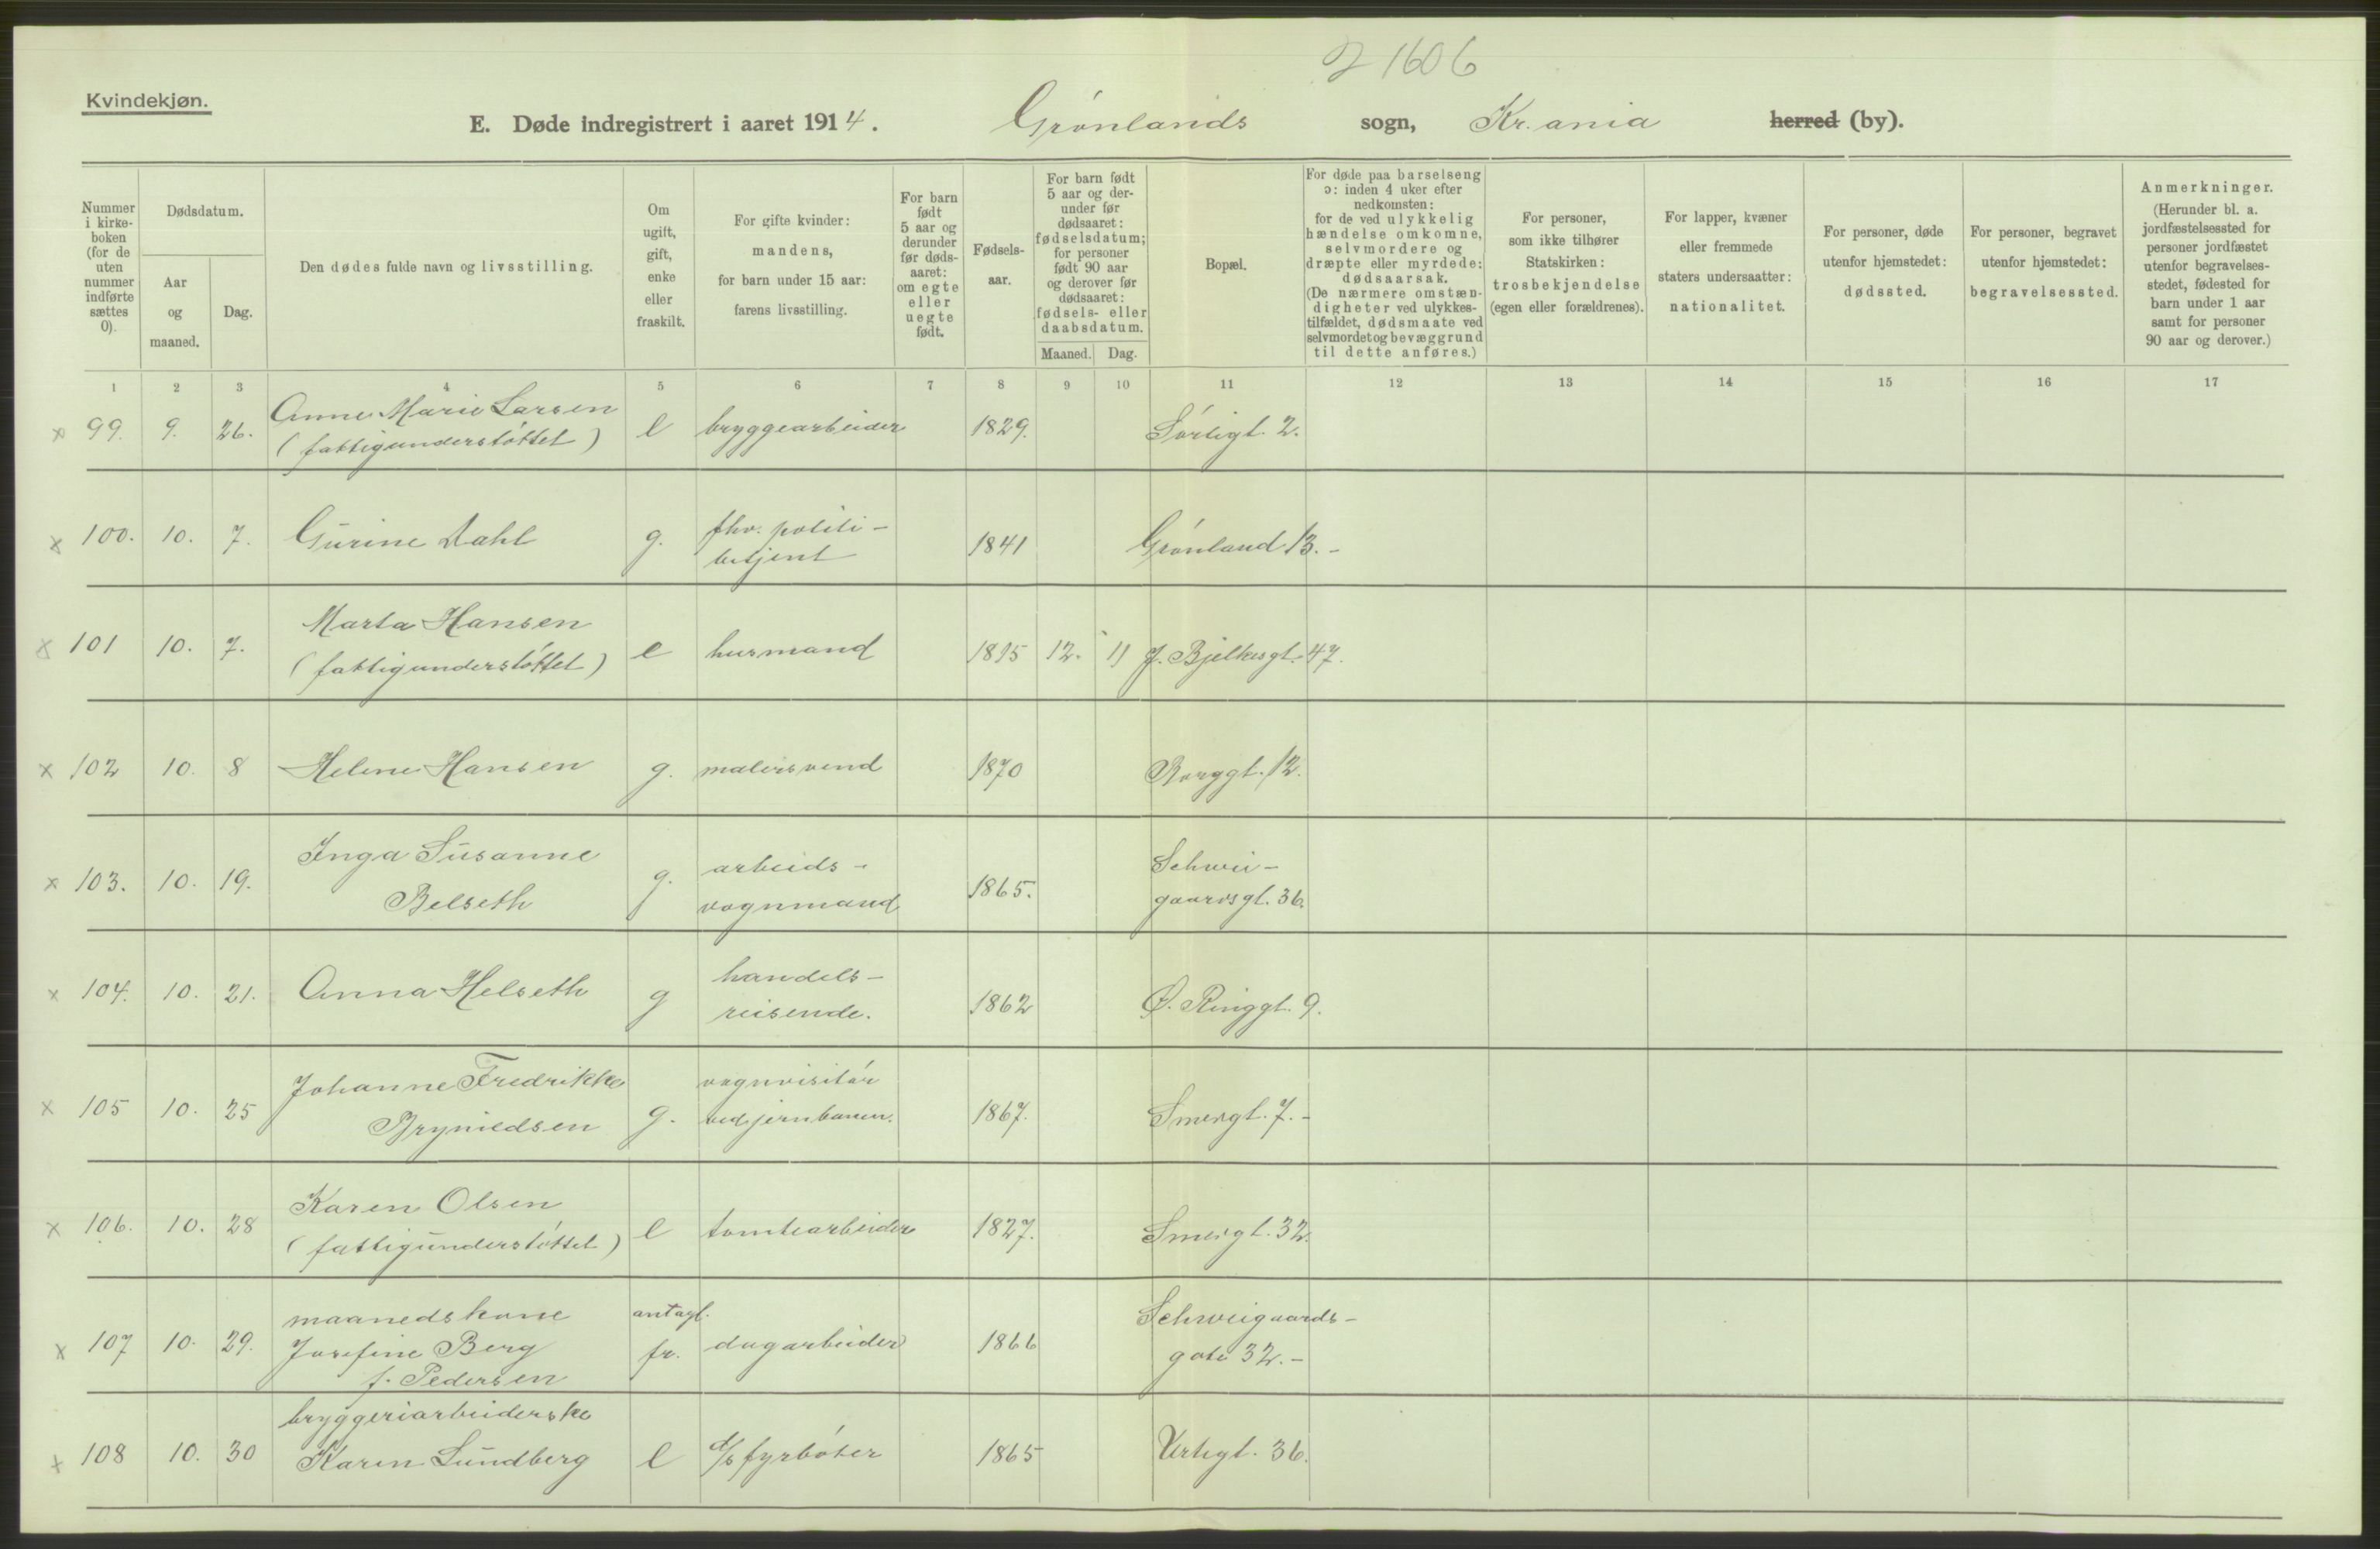 2 1606
Kvindekjøn.
E. Døde indregistrert i aaret 1914. Grønlands sogn, Kr.ania herred (by).
Nummer i kirke-boken (for de uten nummer indførte sættes 0).
Dødsdatum.
Aar og maaned.
Dag.
Den dødes fulde navn og livsstilling.
Om ugift, gift, enke eller fraskilt.
For gifte kvinder: mandens, for barn under 15 aar: farens livsstilling.
For barn født 5 aar og derunder før døds-aaret: om egte eller uegte født.
Fødsels-aar.
For barn født 5 aar og der-under før dødsaaret: fødselsdatum; for personer født 90 aar og derover før dødsaaret: fødsels- eller daabsdatum.
Maaned. Dag.
Bopæl.
For døde paa barselseng ɔ: inden 4 uker efter nedkomsten: for de ved ulykkelig hændelse omkomne, selvmordere og dræpte eller myrdede: dødsaarsak. (De nærmere omstæn-digheter ved ulykkes-tilfældet, dødsmaate ved selvmordet og bevæggrund til dette anføres.)
For personer, som ikke tilhører Statskirken: trosbekjendelse (egen eller forældrenes).
For lapper, kvæner eller fremmede staters undersaatter: nationalitet.
For personer, døde utenfor hjemstedet: dødssted.
For personer, begravet utenfor hjemstedet: begravelsessted.
Anmerkninger. (Herunder bl. a. jordfæstelsessted for personer jordfæstet utenfor begravelses-stedet, fødested for barn under 1 aar samt for personer 90 aar og derover.)
1 2 3 4 5 6 7 8 9 10 11 12 13 14 15 16 17
x 99. 9. 26. Anne Marie Larsen (fattigunderstøttet) e bryggearbeider 1829. Sørligt. 2.
x 100. 10. 7. Gurine Dahl g. fhv. politi-betjent 1841 Grønland 13.-
x 101 10. 7. Marta Hansen (fattigunderstøttet) e husmand 1895 12. 11 J. Bjelkesgt. 47.
x 102 10. 8 Helene Hansen g. malersvend 1870 Borggt. 12.
x 103. 10. 19. Inga Susanne Belseth g. arbeids-vognmand 1865. Schwei-gaardsgt. 36.
x 104. 10. 21. Anna Helseth g handels-reisende. 1862 Ø. Ringgt. 9.
x 105 10. 25 Johanne Fredrikke Brynildsen g. vognvisitør ved jernbanen. 1867. Smergt. 7.-
x 106. 10. 28 Karen Olsen (fattigunderstøttet) e tomtearbeider 1827. Smergt. 32.
x 107 10. 29. maanedskone Josefine Berg f. Pedersen antagl. fr. dagarbeider 1866 Schweigaards-gate 32.-
x 108 10. 30 bryggeriarbeiderske Karen Lundberg e d/s fyrbøter 1865 Urtegt. 36.